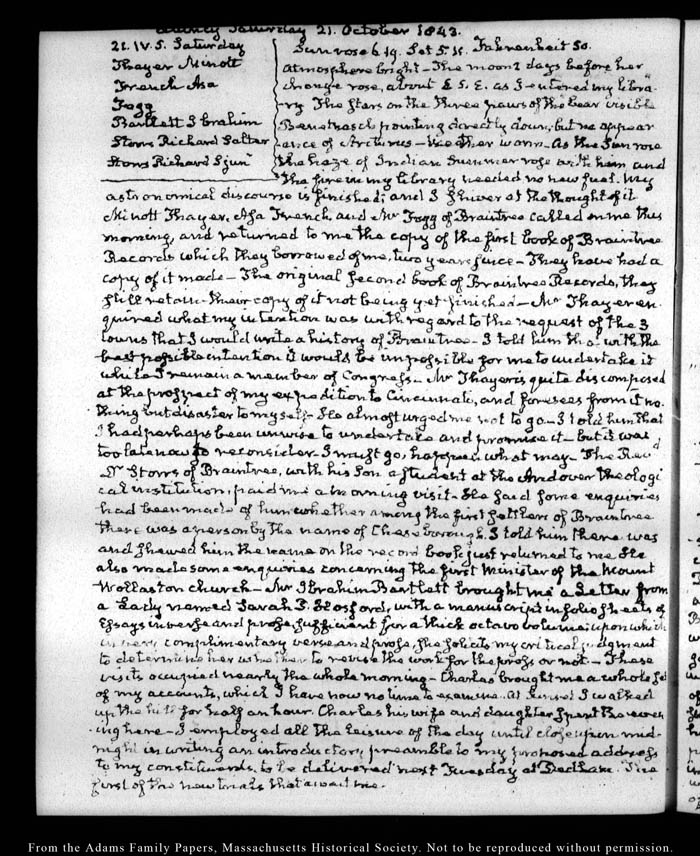 Quincy Saturday 21. October 1843.
21. IV. 5. Saturday
Thayer Minott
French Asa
Fogg
Bartlett Ibrahim
Storrs Richard Salter
Storrs Richard S jun
Sun rose 6.19. Set 5.11. Fahrenheit 50.
Atmosphere bright – The moon 2 days before her
change rose, about E S. E. as I entered my libra-
ry The Stars on the three paws of the bear visible
Benetnasch pointing directly down, but no appear
ance of Arcturus – Weather warm. As the Sun rose
the haze of Indian Summer rose with him and
the fire in my library needed no new fuel. My
astronomical discourse is finished; and I shiver at the thought of it
Minott Thayer, Asa French, and Mr Fogg of Braintree called on me this
morning, and returned to me the copy of the first book of Braintree
Records which they borrowed of me, two years since – They have had a
copy of it made – The original Second book of Braintree Records, they
still retain their copy of it not being yet finished – Mr Thayer en
quired what my intention was with regard to the request of the 3
towns that I would write a history of Braintree – I told him that with the
best possible intention it would be impossible for me to undertake it
while I remain a member of Congress – Mr Thayer is quite discomposed
at the prospect of my expedition to Cincinnati, and foresees from it no-
thing but disaster to myself – He almost urged me not to go – I told him that
I had perhaps been unwise to undertake and promise it – but it was
too late now to reconsider. I must go, happen what may – The Revd
Dr Storrs of Braintree, with his Son a student at the Andover theologi
cal institution, paid me a morning visit – He said some enquiries
had been made of him whether among the first settlers of Braintree
there was a person by the name of Cheseborough. I told him there was
and shewed him the name on the record book just returned to me He
also made some enquiries concerning the first Minister of the Mount
Wollaston church – Mr Ibrahim Bartlett brought me a Letter from
a Lady named Sarah S. Hosford, with a manuscript in folio sheets of
Essays in verse and prose, sufficient for a thick octavo volume upon which
in very complimentary verse and prose, she solicits my critical judgment
to determine her whether to revise the work for the press or not – These
visits occupied nearly the whole morning – Charles brought me a whole set
of my accounts, which I have now no time to examine. At Sunset I walked
up the hill for half an hour. Charles his wife and daughter spent the even
ing here – I employed all the leisure of the day until close upon mid-
night in writing an introductory preamble to my proposed address
to my constituents, to be delivered next Tuesday at Dedham. The
first of the new trials that await me.
From the Adams Family Papers, Massachusetts Historical Society. Not to be reproduced without permission.